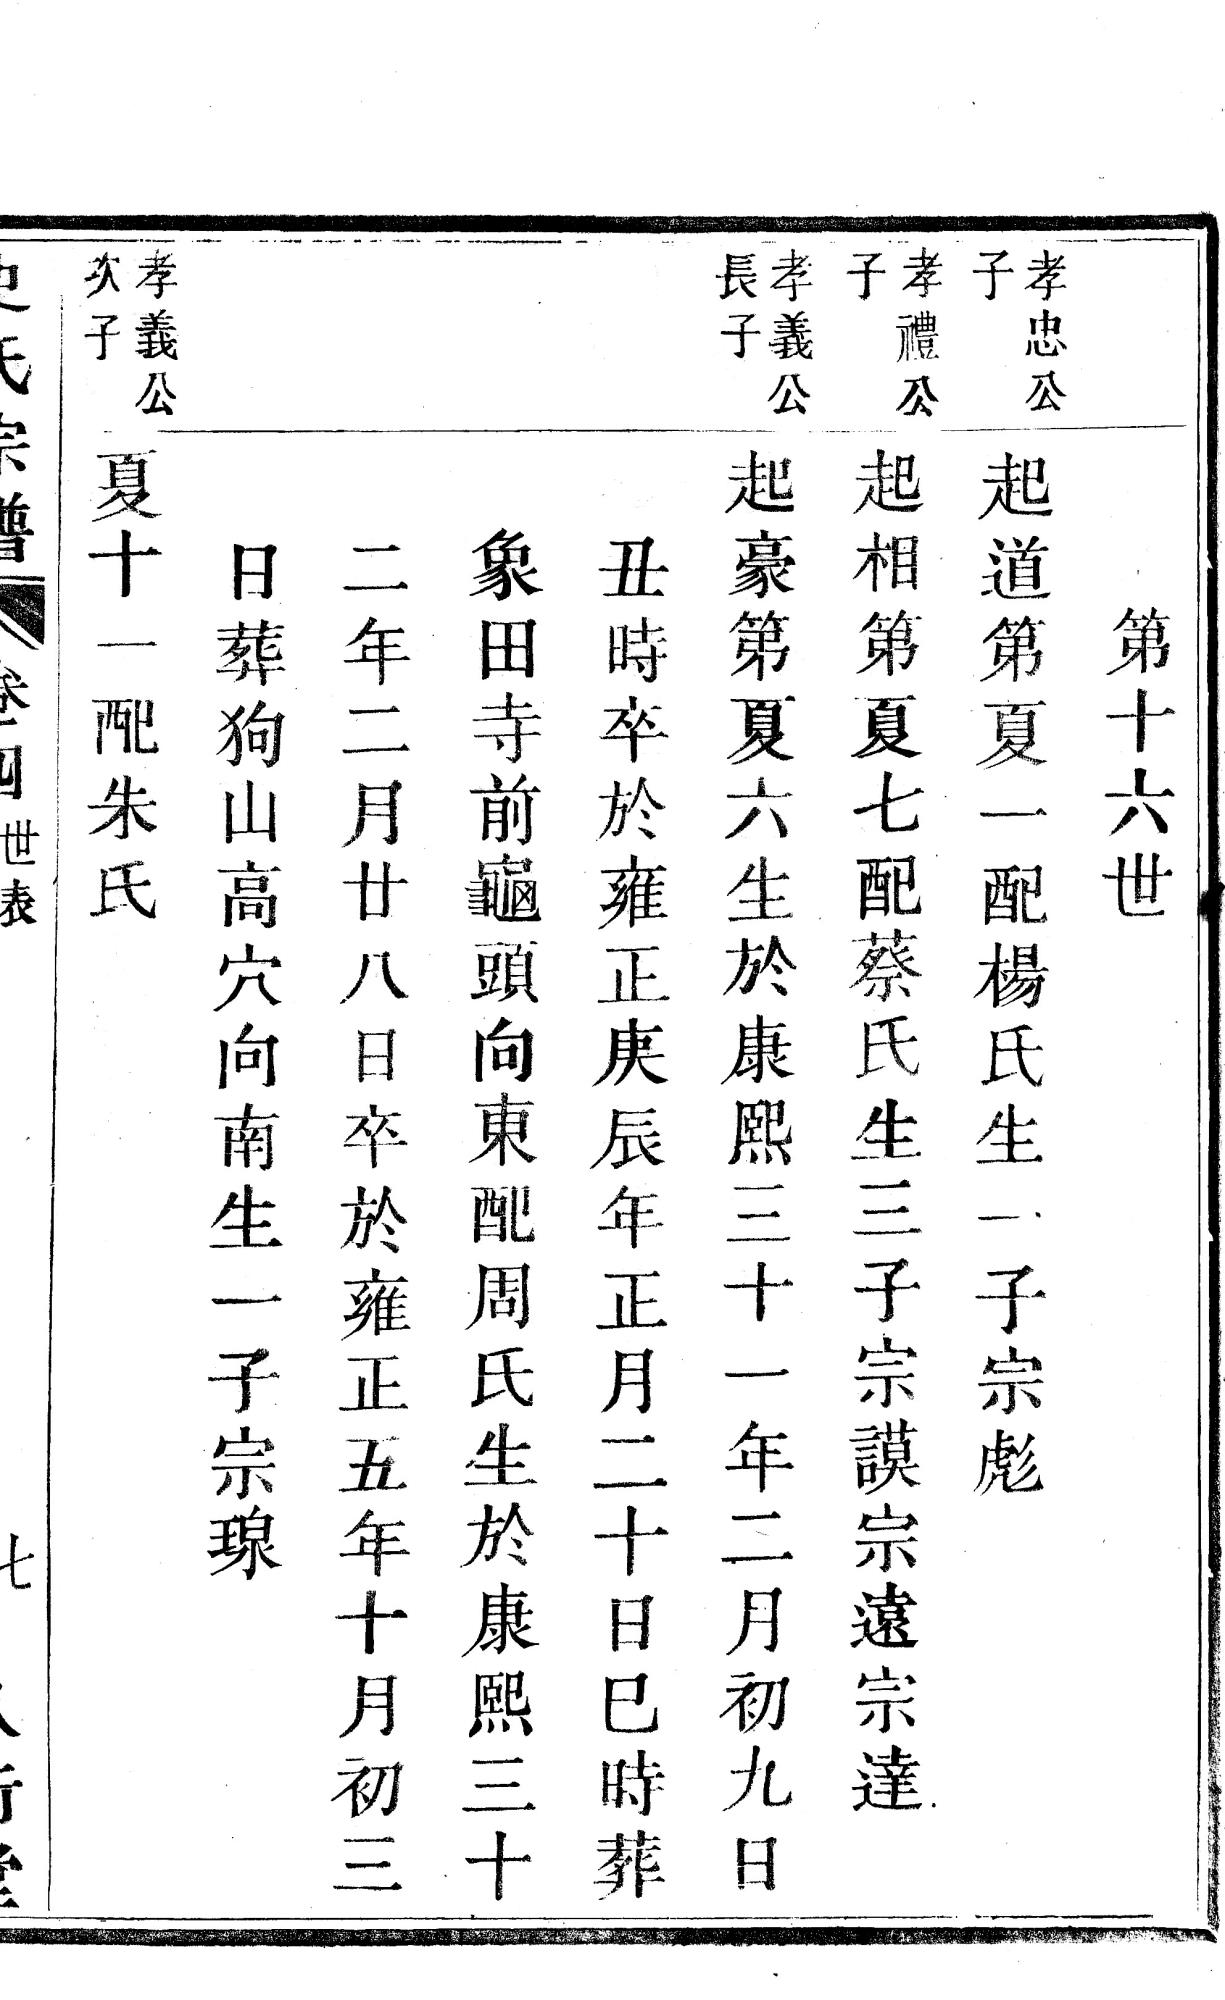 第十六世
孝忠公
子
起道第夏一配楊氏生一子宗彪
孝禮公
子
起相第夏七配蔡氏生三子宗謨宗遠宗達
孝義公
長子
起豪第夏六生於康熙三十一年二月初九日
丑時卒於雍正庚辰年正月二十日巳時葬
象田寺前龜頭向東配周氏生於康熙三十
二年二月廿八日卒於雍正五年十月初三
日葬狗山高穴向南生一子宗琅
孝義公
次子
夏十一配朱氏
史氏宗譜 卷四 世表 七